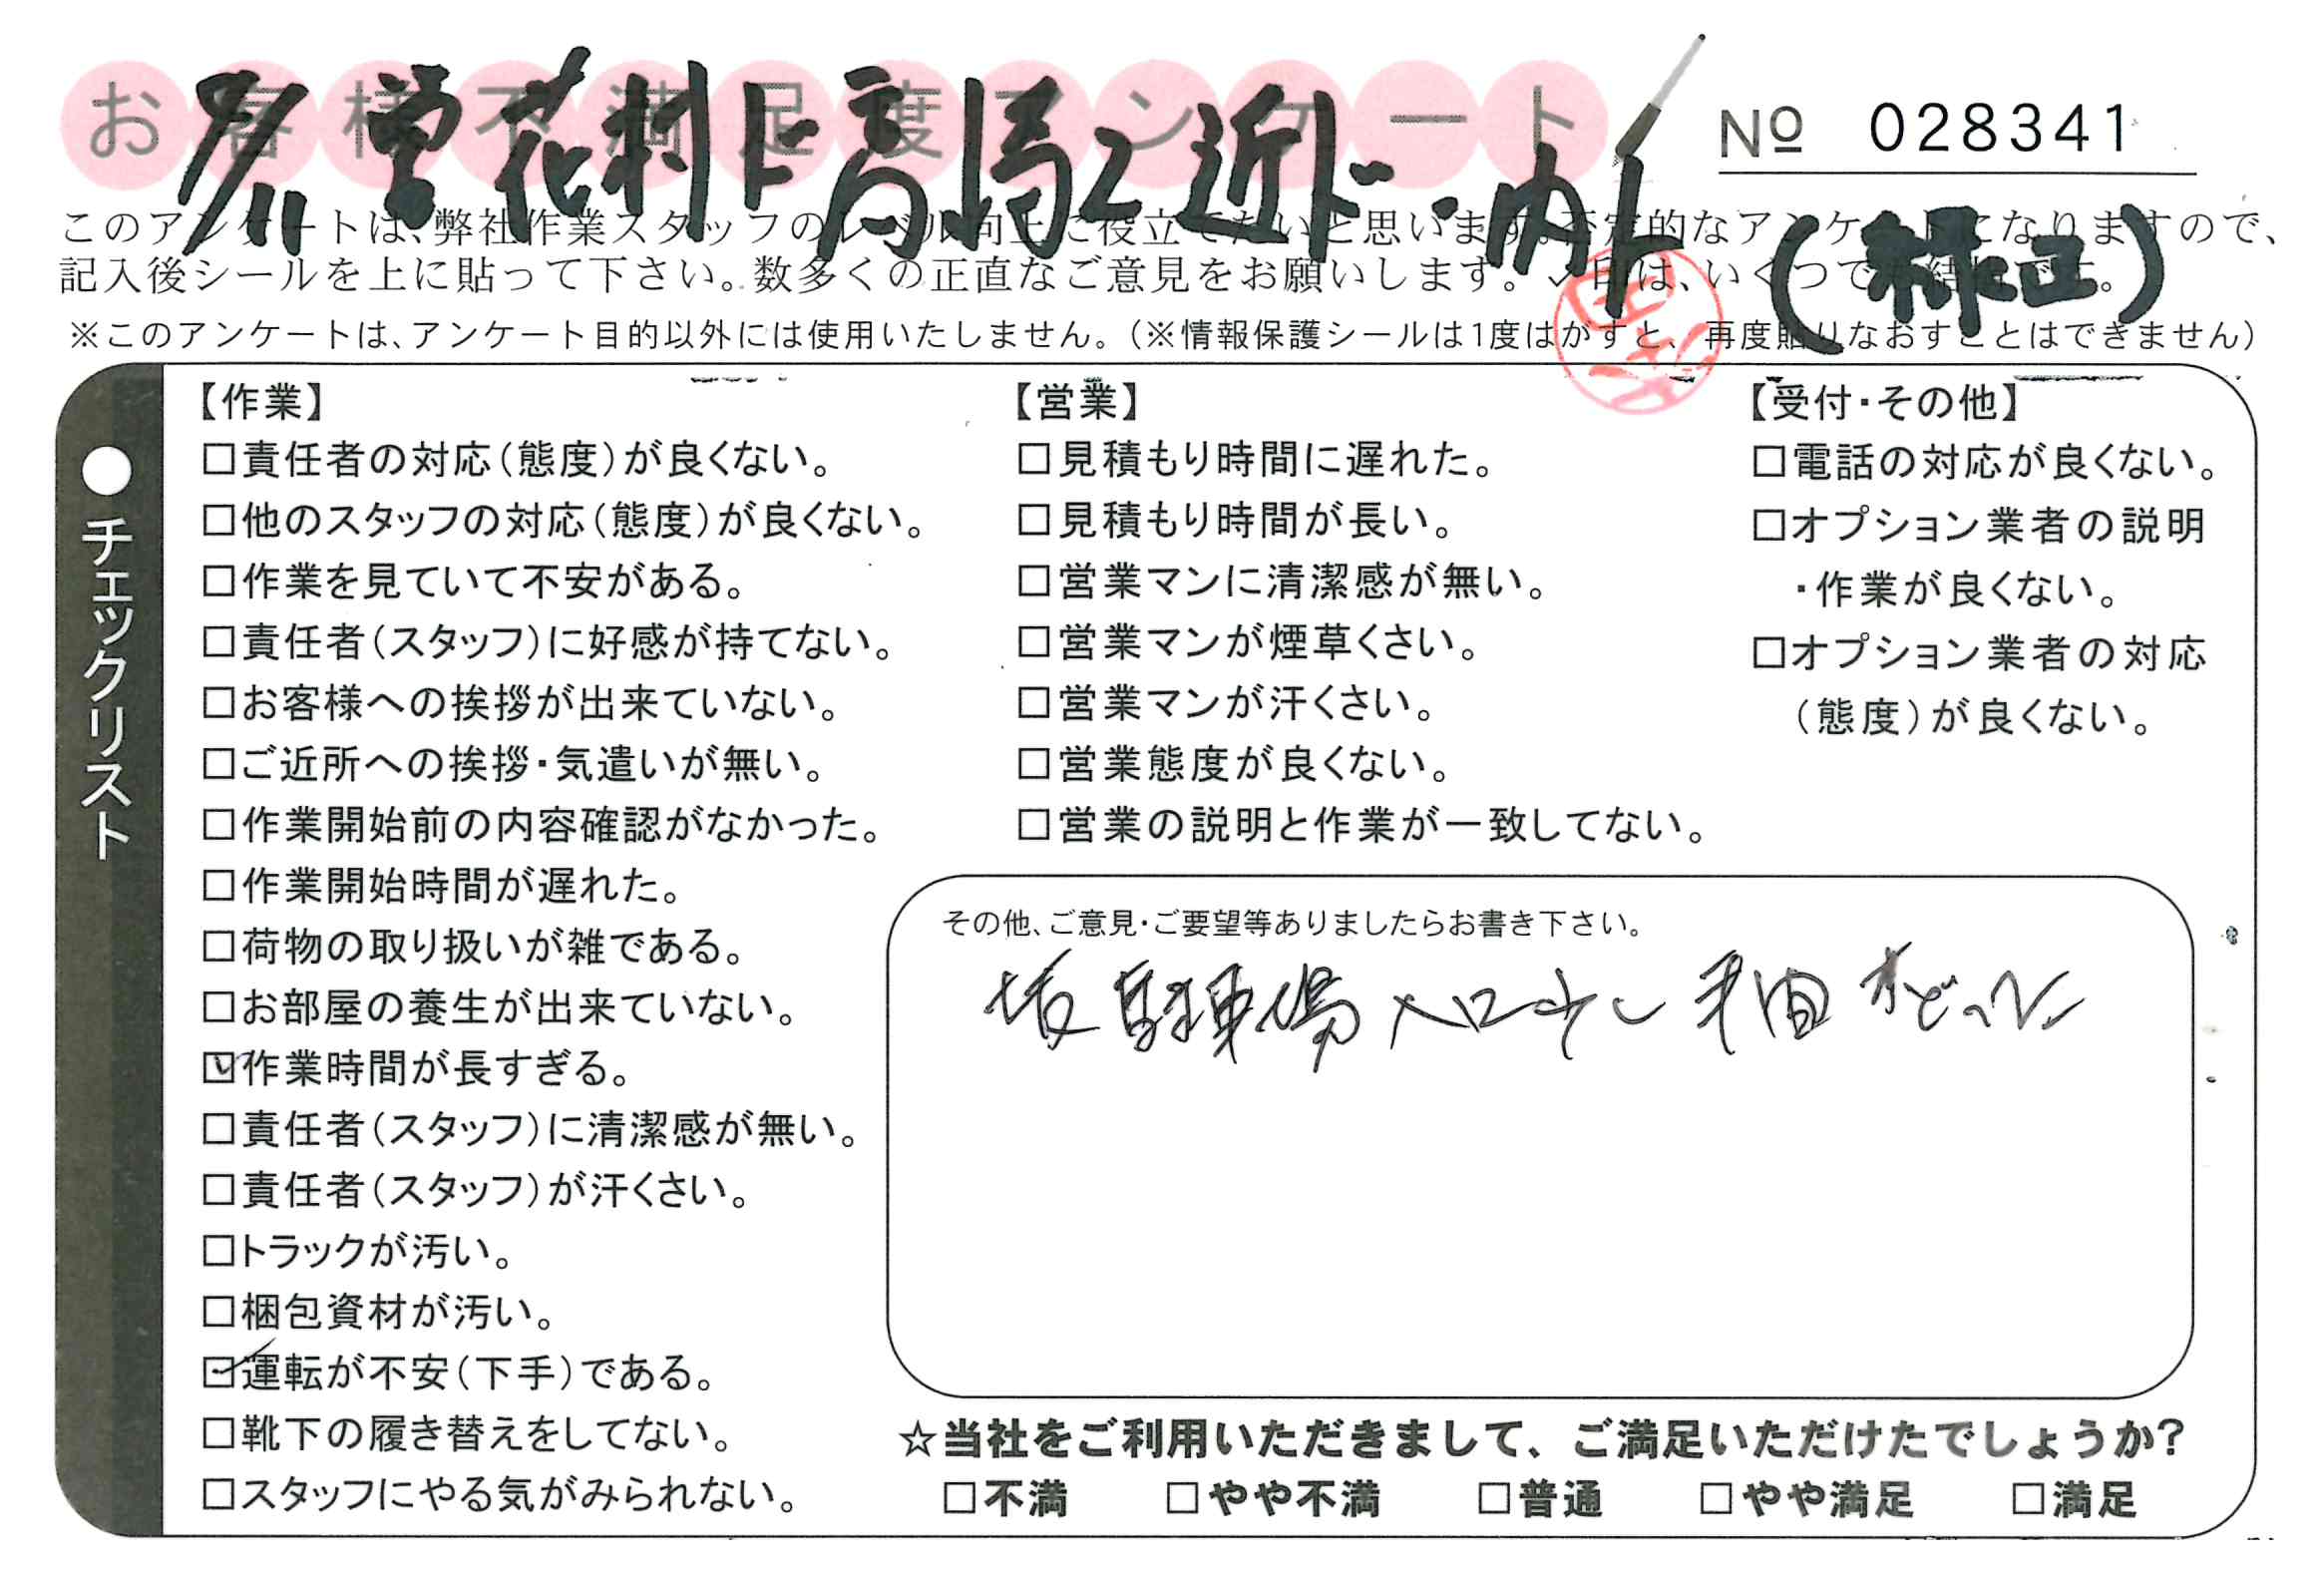 お客様不満足度アンケート
№ 028341
このアンケートは、弊社作業スタッフのレベル向上に役立てたいと思います。否定的なアンケートになりますので、
記入後シールを上に貼って下さい。数多くの正直なご意見をお願いします。✓印は、いくつでも結構です。
※このアンケートは、アンケート目的以外には使用いたしません。(※情報保護シールは1度はがすと、再度貼りなおすことはできません)
●チェックリスト
【作業】
□責任者の対応(態度)が良くない。
□他のスタッフの対応(態度)が良くない。
□作業を見ていて不安がある。
□責任者(スタッフ)に好感が持てない。
□お客様への挨拶が出来ていない。
□ご近所への挨拶・気遣いが無い。
□作業開始前の内容確認がなかった。
□作業開始時間が遅れた。
□荷物の取り扱いが雑である。
□お部屋の養生が出来ていない。
☑作業時間が長すぎる。
□責任者(スタッフ)に清潔感が無い。
□責任者(スタッフ)が汗くさい。
□トラックが汚い。
□梱包資材が汚い。
☑運転が不安(下手)である。
□靴下の履き替えをしてない。
□スタッフにやる気がみられない。
【営業】
□見積もり時間に遅れた。
□見積もり時間が長い。
□営業マンに清潔感が無い。
□営業マンが煙草くさい。
□営業マンが汗くさい。
□営業態度が良くない。
□営業の説明と作業が一致してない。
【受付・その他】
□電話の対応が良くない。
□オプション業者の説明
・作業が良くない。
□オプション業者の対応
(態度)が良くない。
その他、ご意見・ご要望等ありましたらお書き下さい。
駐車場入口
☆当社をご利用いただきまして、ご満足いただけたでしょうか?
□不満 □やや不満 □普通 □やや満足 □満足